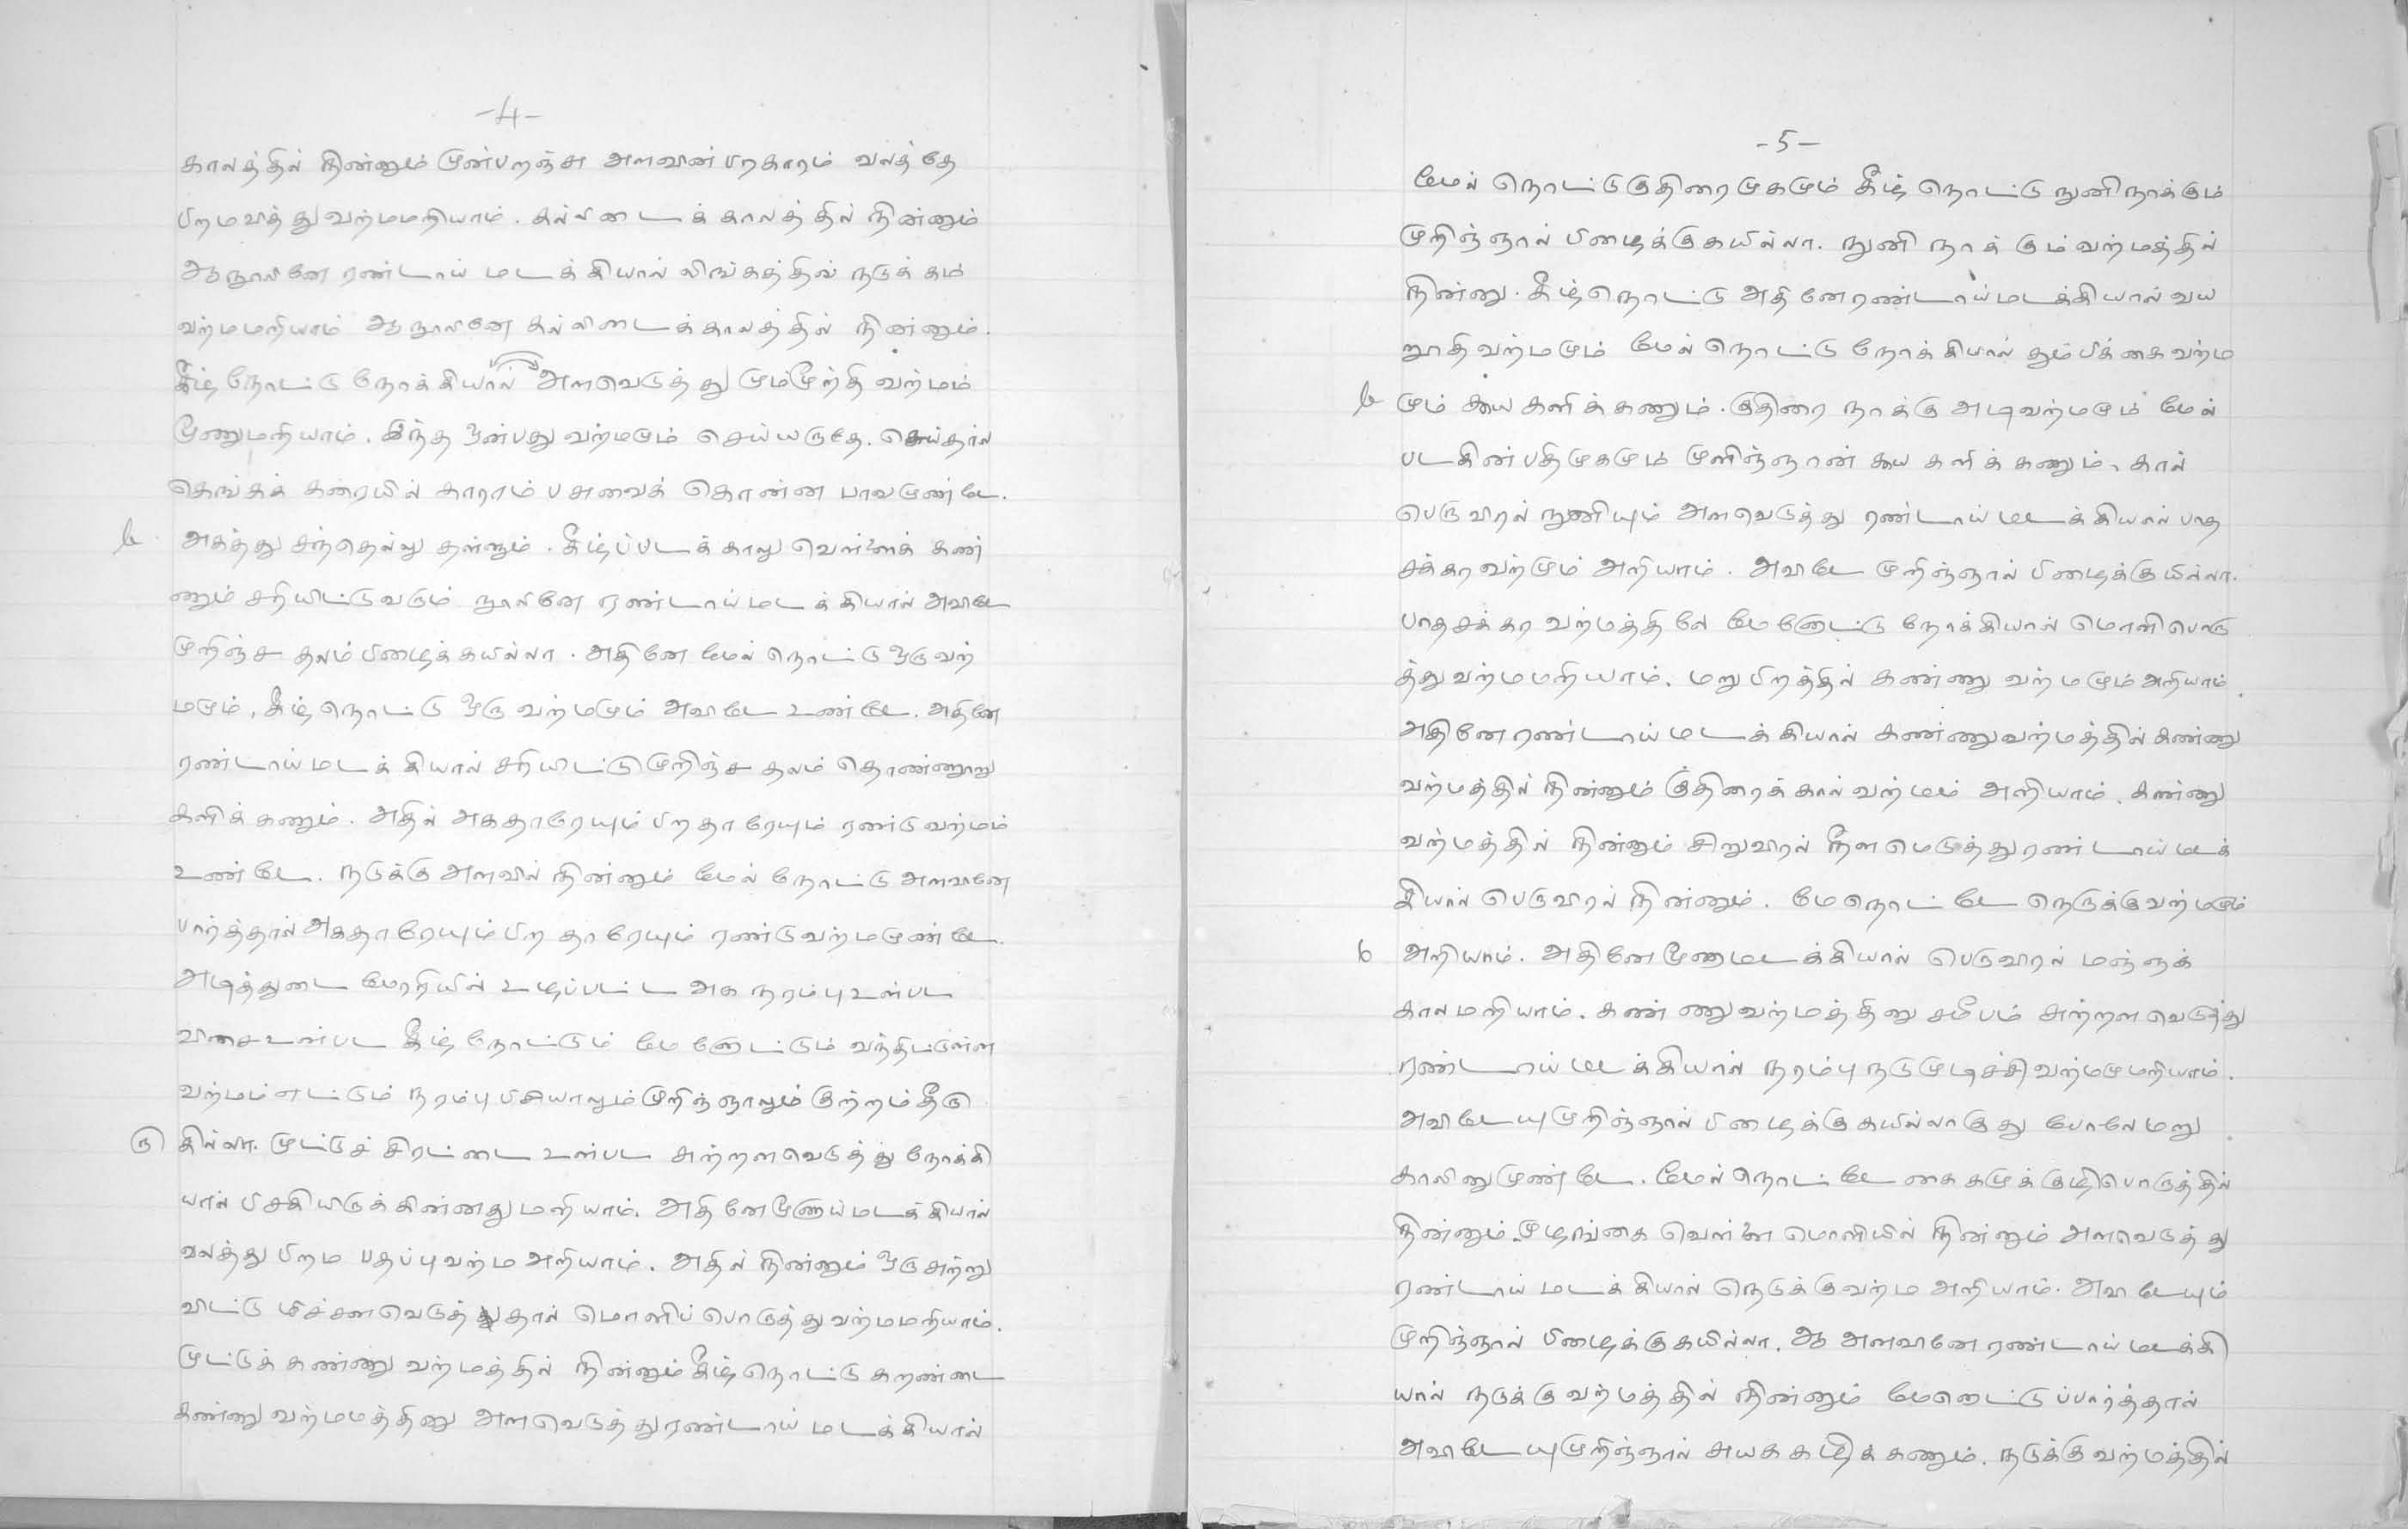 -4-
காலத்தில் நின்னும் முன்பறஞ்ச அளவின் பிறகாரம் வலத்தே
பிறமவித்துவற்மமறியாம். கல்லிடைக் காலத்தில் நின்னும்
ஆநூலினே ரண்டாய் மடக்கியால் லிங்கத்தில் நடுக்கம்
வற்மமறியாம் ஆநூலினே கல்லிடைக்காலத்தில் நின்னும்.
கீழ் நோட்டு நோக்கியால் அளவெடுத்து மும்மூர்தி வற்மம்
மூணுமறியாம். இந்த ஒன்பது வற்மமும் செய்யருதே. செய்தால்
கெங்கக் கரையில் காராம் பசுவைக் கொன்ன பாவமுண்டே.
௪ அகத்து சந்தெல்லு தள்ளும். கீழ்ப்படக்காலு வெள்ளைக் கண்
ணும் சரியிட்டுவரும் நூலினே ரண்டாய்மடக்கியால் அவிடே
முறிஞ்ச தலம் பிழைக்கயில்லா. அதினே மேல் நொட்டு ஒருவற்
மமும், கீழ் நொட்டு ஒரு வற்மமும் அவிடே உண்டே. அதினே
ரண்டாய்மடக்கியால் சரியிட்டுமுறிஞ்ச தலம் தொண்ணூறு
களிக்கணும். அதில் அகதாரேயும் பிறதாரேயும் ரண்டுவற்மம்
உண்டே. நடுக்கு அளவில் நின்னும் மேல் நோட்டு அளவினே
பார்த்தால் அகதாரேயும் பிற தாரேயும் ரண்டுவற்மமுண்டே.
அடித்துடை மேரியில் உழப்பட்ட அக நரம்பு உள்பட
விசை உள்பட கீழ் நோட்டும் மேனோட்டும் வந்திட்டுள்ள
வற்மம்எட்டும் நரம்பு பிசியாலும் முறிஞ்ஞாலும் குற்றம் தீரு
௫ கில்லா. முட்டுச் சிரட்டை உள்பட சுற்றளவெடுத்து நோக்கி
யால் பிசகியிருக்கின்னதுமறியாம். அதினேமூணாய்மடக்கியால்
வலத்து பிறம பதப்புவற்ம அறியாம். அதில் நின்னும் ஒருசுற்று
விட்டு மிச்சளவெடுத்துதால் மொளிப் பொருத்துவற்மமறியாம்.
முட்டுக் கண்ணு வற்மத்தில் நின்னும் கீழ் நொட்டு கரண்டை
கண்ணு வற்மமத்தினு அளவெடுத்துரண்டாய் மடக்கியால்
-5-
மேல் நொட்டுகுதிரைமுகமும் கீழ் நொட்டு நுனிநாக்கும்
முறிஞ்ஞால் பிழைக்குகயில்லா. நுனி நாக்கும்வற்மத்தில்
நின்னு. கீழ்நொட்டு அதினேரண்டாய்மடக்கியால் வய
றூதி வற்மமும் மேல் நொட்டு நோக்கியால் தும்பிக்கை வற்ம
௬ மும் கூய களிக்கணும். குதிரை நாக்கு அடிவற்மமும் மேல்
படகின்பதிமுகமும் முளிஞ்ஞான் கூய களிக்கணும். கால்
பெருவிரல் நுணியும் அளவெடுத்து ரண்டாய்மடக்கியால் பாத
சக்கர வற்மும் அறியாம். அவிடே முறிஞ்ஞால் பிழைக்குயில்லா.
பாதசக்கர வற்மத்திலே மேனோட்டு நோக்கியால் மொளிபொரு
த்து வற்மமறியாம். மறுபிறத்தில் கண்ணு வற்மமும் அறியாம்
அதினேரண்டாய்மடக்கியால் கண்ணுவற்மத்தில் கண்ணு
வற்மத்தில் நின்னும் குதிரைக்கால் வற்மம் அறியாம். கண்ணு
வற்மத்தில் நின்னும் சிறுவிரல் நீளமெடுத்துரண்டாய்மடக்
கியால் பெருவிரல் நின்னும். மேநொட்டே நெடுக்குவற்மமும்
௬ அறியாம். அதினே மூணுமடக்கியால் பெருவிரல் மஞ்ஞக்
காலமறியாம். கண்ணுவற்மத்தினு சமீபம் சுற்றளவெடுத்து
ரண்டாய்மடக்கியால் நரம்பு நடுமுடிச்சி வற்மமுமறியாம்.
அவிடேயுமுறிஞ்ஞால் பிழைக்குகயில்லாகுது போலேமறு
காலினுமுண்டே. மேல் நொட்டே கை கமுக்குழிபொருத்தில்
நின்னும். முழங்கை வெள்ளை மொளியில் நின்னும் அளவெடுத்து
ரண்டாய் மடக்கியால் நெடுக்குவற்ம அறியாம். அவிடேயும்
முறிஞ்ஞால் பிழைக்குகயில்லா. ஆ அளவினே ரண்டாய்மடக்கி
யால் நடுக்கு வற்மத்தில் நின்னும் மேனெட்டு ப்பார்த்தால்
அவிடேயுமுறிஞ்ஞால் சுயக கழிக்கணும். நடுக்கு வற்மத்தில்